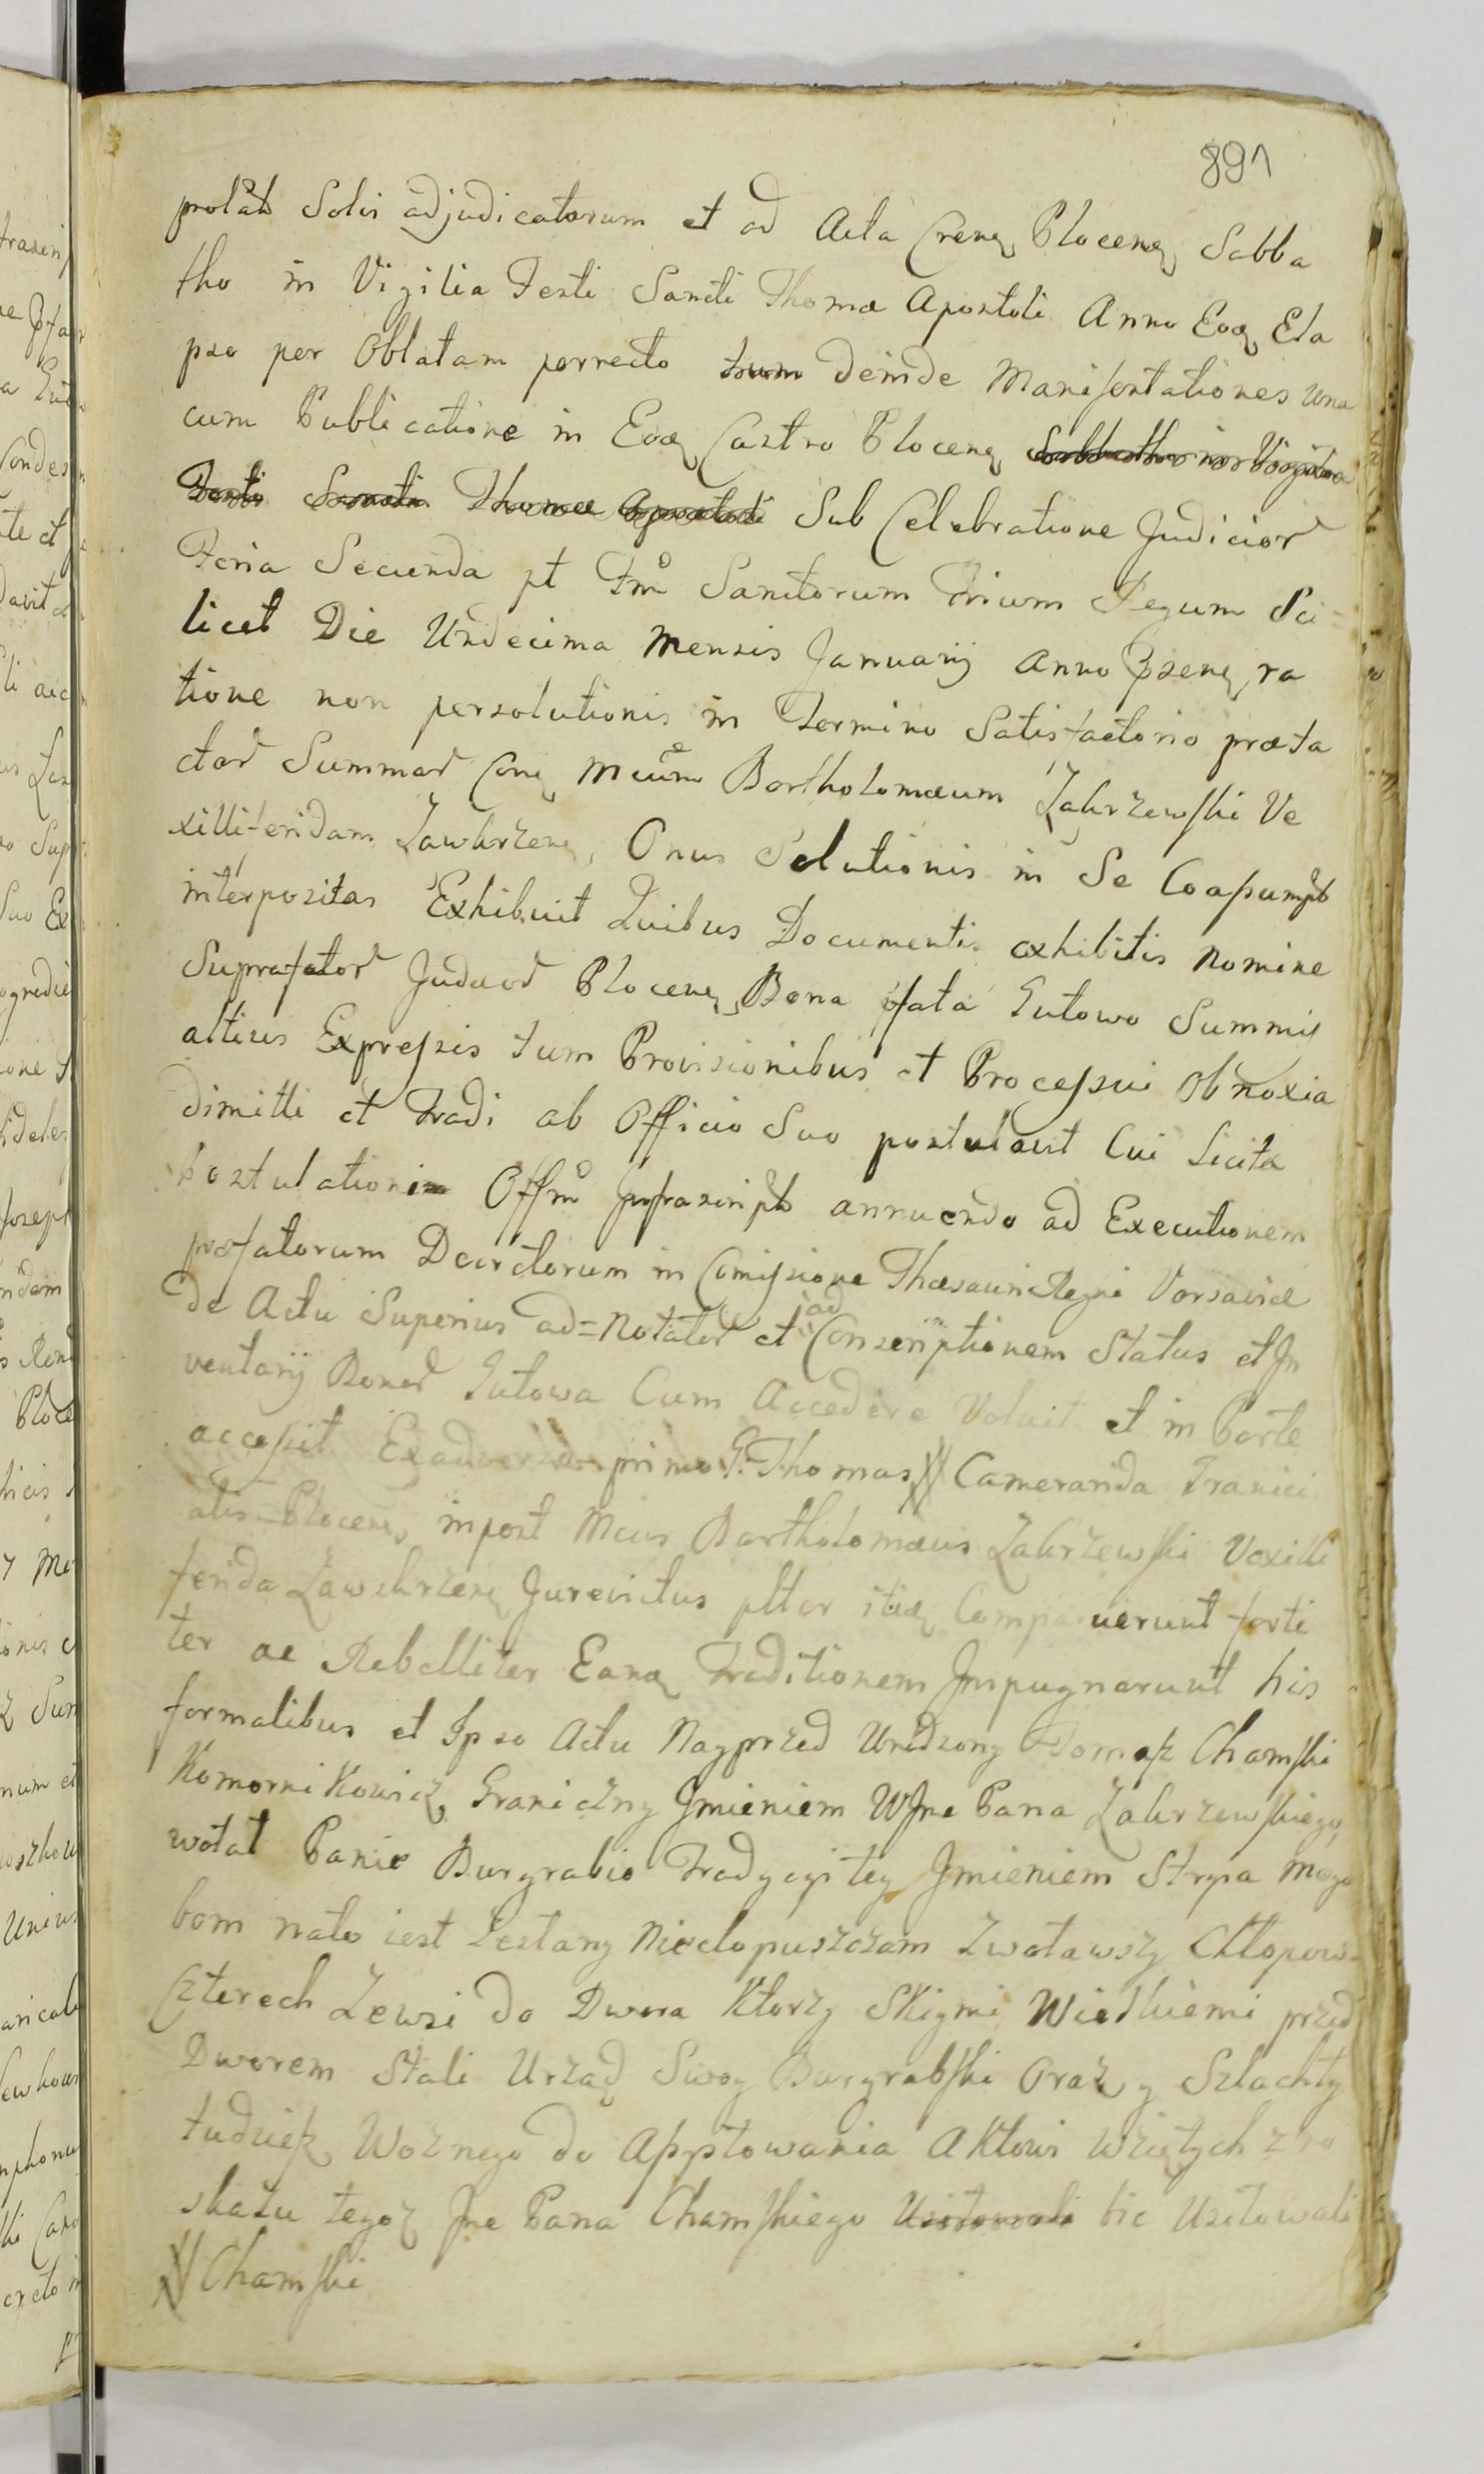 891
prolat Solis adjudicatorum et ad Acta Crenę Plocenę Sabba
tho in Vigilia Festi Sancti Thomæ Apostoli Anno Eodę Ela
pso per Oblatam porrecto tum deinde Manifestationes una
cum Publicatione in Eodę Castro Plocenę Sabbatho in Vigilia
Festi Sancti Thomæ Apostoli Sub Celebratione Judicior
Feria Secunda pt Fm Sanctorum Trium Regum Sci=
licet Die Undecima Mensis Januarij Anno Psenę, ra
tione non persolutionis in Termino Satisfactorio præta
ctar Summar Conę Mcum Bartholomæum Zakrzewski Ve
xilliferidam Zawkrzenę, Onus Solutionis in Se Coassumpt
interpositas Exhibuit Quibus Documentis exhibitis Nomine
Suprafator Judæor Plocenę Bona pfata Gutowo Summis
altius Expressis tum Provisionibus et Processui obnoxia
dimitti et tradi ab Officio Suo postulavit Cui Licitæ
Postulationi Offm Infrascript annuendo ad Executionem
præfatorum Decretorum in Comissione Thesauri Regni Varsaviæ
de Actu Superius ad=Notater et ad Conscriptionem Status et In
ventarij Bonor Gutowa Cum Accedere Voluit et in Parte
accessit Exadverso primo G. Thomas // Camerarida Granici
alis Plocenę inpost Mcus Bartholomæus Zakrzewski Vexilli
ferida Zawskrzenę Jurevictus plter itidę Comparuerunt forti
ter ac Rebelliter Eandę Traditionem Impugnarunt his
formalibus et Ipso Actu Nayprzed Urodzony Tomasz Chamski
Komornikowicz Graniczny Imieniem WJne Pana Zakrzewskiego,
wołał Panie Burgrabio Tradycyi tey Imieniem Stryia mego
bom nato iest Zesłany Niedopuszczam Zwoławszy Chłopow
Czterech Zewsi do Dwora Ktorzy Skiymi Wielkiemi przed
Dworem Stali Urząd Swoy Burgrabski Oraz y Szlachty
tudziesz Woznego do Apptowania Aktow wziętych z ro
skazu tegoz Jne Pana Chamskiego Usitowali bic Usitowali
// Chamski